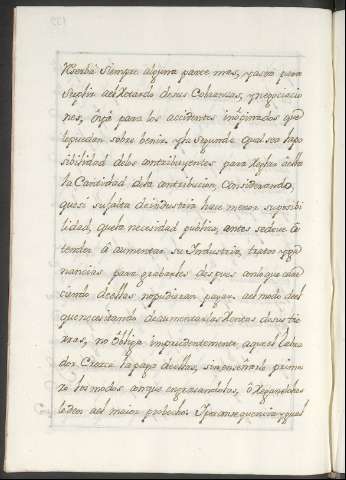 Reserba siempre alguna parte mas, ya sea para
Suplir ael Retardo desus Cobranzas, y negociacio
nes, ô ya para los accidentes inopinados que
lepueden sobre benir. y la Segunda qual sea la po
sibilidad delos contribuyentes para Reglar aella
la Cantidad dela contribucion, Considerando,
quesi su falta deindustria hace menor su posibi
lidad, quela necesidad publica, antes sedeve â
tender â aumentar su Industria, tratos y ga
nancias para grabarles despues en lo que care
ciendo deellas nopudieran pagar. ael modo del
que necesitando deaumentar las Rentas desus tie
rras, no Obliga imprudentemente aqueel Labra
dor Crezca la paga deellas, sin enseñarle prime
ro los modos conque engrasandolas, ô Regandolas
le den ael maior probecho. I por consequencia, y qual